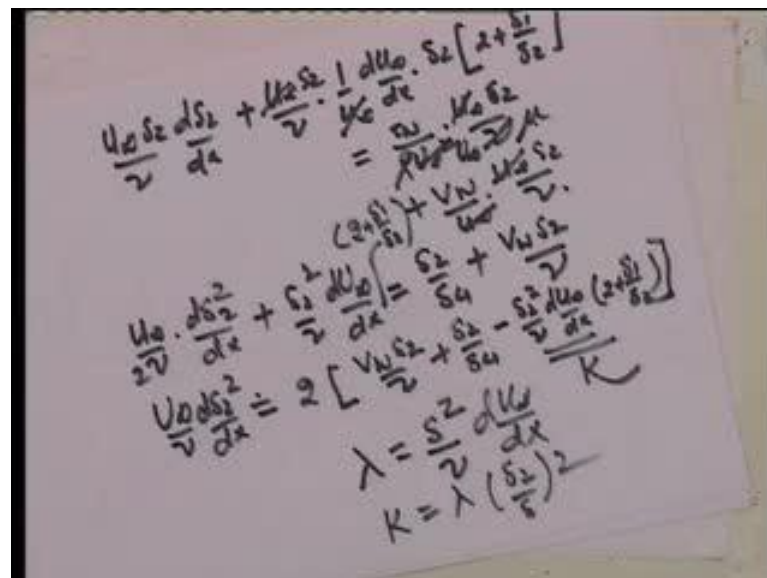 U∞δ₂/ν dδ₂/dx + U∞δ₂/ν · 1/U∞ dU∞/dx · δ₂[2+δ₁/δ₂]
= · U∞δ₂/ν
+ Vw/U∞ · U∞δ₂/ν.
U∞/2ν · dδ₂²/dx + δ₂²/ν dU∞/dx (2+δ₁/δ₂) = δ₂/δ₄ + Vwδ₂/ν
U∞/ν dδ₂²/dx = 2[Vwδ₂/ν + δ₂/δ₄ - δ₂²/ν dU∞/dx (2+δ₁/δ₂)]
K
λ = δ²/ν dU∞/dx
K = λ(δ₂/δ)²